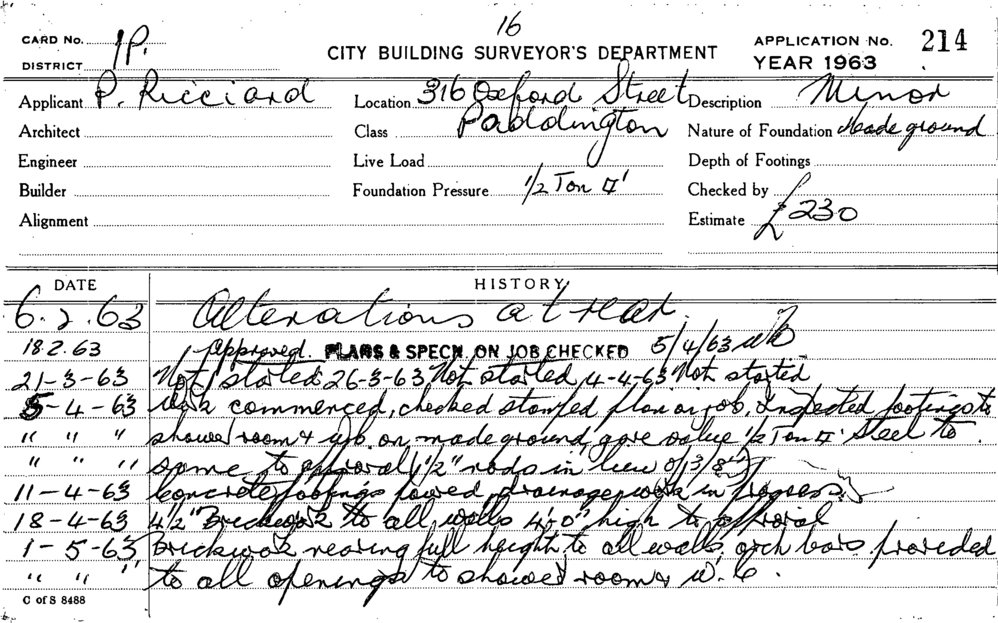 16
CARD No. 1P.
DISTRICT
CITY BUILDING SURVEYOR'S DEPARTMENT
APPLICATION No. 214
YEAR 1963
Applicant P. Ricciard Location 316 Oxford Street Description Minor
Architect Class Paddington Nature of Foundation Made ground
Engineer Live Load Depth of Footings
Builder Foundation Pressure 1/2 Ton □' Checked by
Alignment Estimate £230
DATE HISTORY
6.2.63 Alterations at rear.
18.2.63 Approved. PLANS & SPECN. ON JOB CHECKED 5/4/63
21-3-63 Not started 26-3-63 Not started 4-4-63 Not started
5-4-63 Work commenced, checked stamped plan on job, Inspected footings to
" " " shower room & w/b on made ground, gave value 1/2 Ton □' Steel to
" " " same to approval (1/2" rods in lieu of 3/8")
11-4-63 Concrete footings poured, drainage work in progress
18-4-63 4 1/2" Brickwork to all walls 4'0" high to approval
1-5-63 Brickwork nearing full height to all walls, arch bars provided
" " " to all openings to shower room & W.C.
C of S 8488